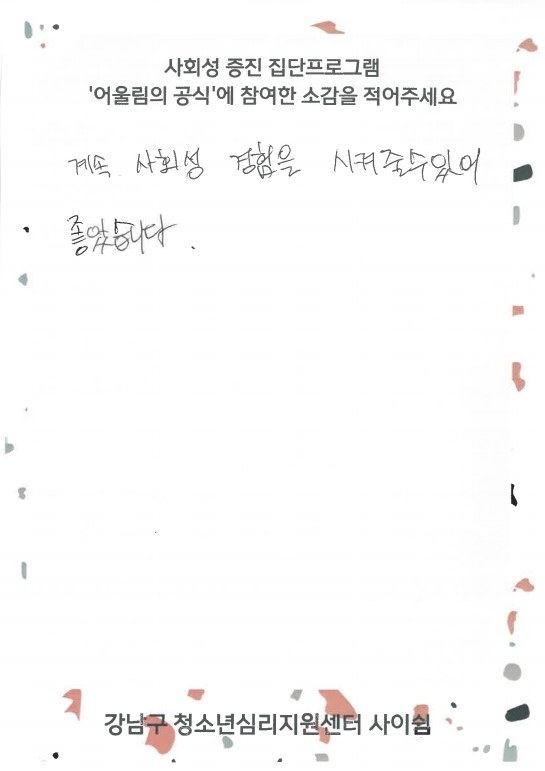 사회성 증진 집단프로그램
'어울림의 공식'에 참여한 소감을 적어주세요
계속 사회성 경험을 시켜줄수있어
좋았습니다.
강남구 청소년심리지원센터 사이쉼